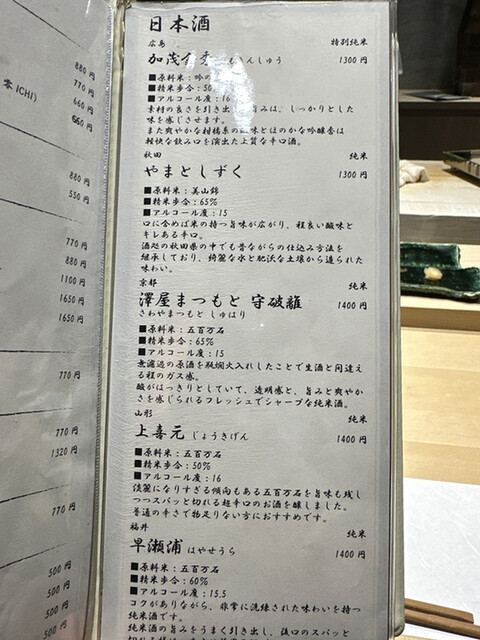 日本酒
広島 特別純米
加茂金秀 1300円
■原料米：吟の
■精米歩合：50
■アルコール度：16
素材の良さを引き出し、旨みは、しっかりとした
味を感じさせます。
また爽やかな柑橘系の酸味とほのかな吟醸香は
軽快な飲み口を演出した上質な辛口酒。
秋田 純米
やまとしずく 1300円
■原料米：美山錦
■精米歩合：65%
■アルコール度：15
口に含めば米の持つ旨味が広がり、程良い酸味と
キレある辛口。
酒処の秋田県の中でも昔ながらの仕込み方法を
継承しており、綺麗な水と肥沃な土壌から造られた
味わい。
京都 純米
澤屋まつもと 守破離 1400円
さわやまつもと しゅはり
■原料米：五百万石
■精米歩合：65%
■アルコール度：15
無濾過の原酒を瓶燗火入れしたことで生酒と間違え
る程のガス感。
酸がはっきりとしていて、透明感と、旨みと爽やか
さを感じられるフレッシュでシャープな純米酒。
山形 純米
上喜元 じょうきげん 1400円
■原料米：五百万石
■精米歩合：50%
■アルコール度：16
淡麗になりすぎる傾向もある五百万石を旨味も残し
つつスパッと切れる超辛口のお酒を醸しました。
普通の辛さで物足りない方におすすめです。
福井 純米
早瀬浦 はやせうら 1400円
■原料米：五百万石
■精米歩合：60%
■アルコール度：15.5
コクがありながら、非常に洗練された味わいを持つ
純米酒です。
純米酒の旨みをうまく引き出し、後口のスパッと
880円
ICHI）
770円
660円
660円
880円
550円
770円
880円
1100円
1650円
1650円
770円
770円
1320円
770円
500円
500円
500円
500円